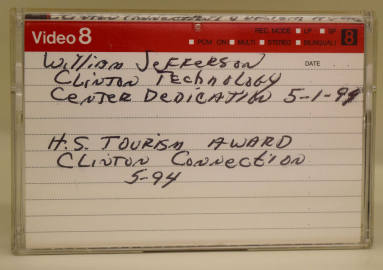 REC. MODE LP SP
Video 8
PCM ON MULTI STEREO BILINGUAL 8
DATE
William Jefferson
Clinton Technology
Center Dedication 5-1-94
H.S. Tourism Award
Clinton Connection
5-94